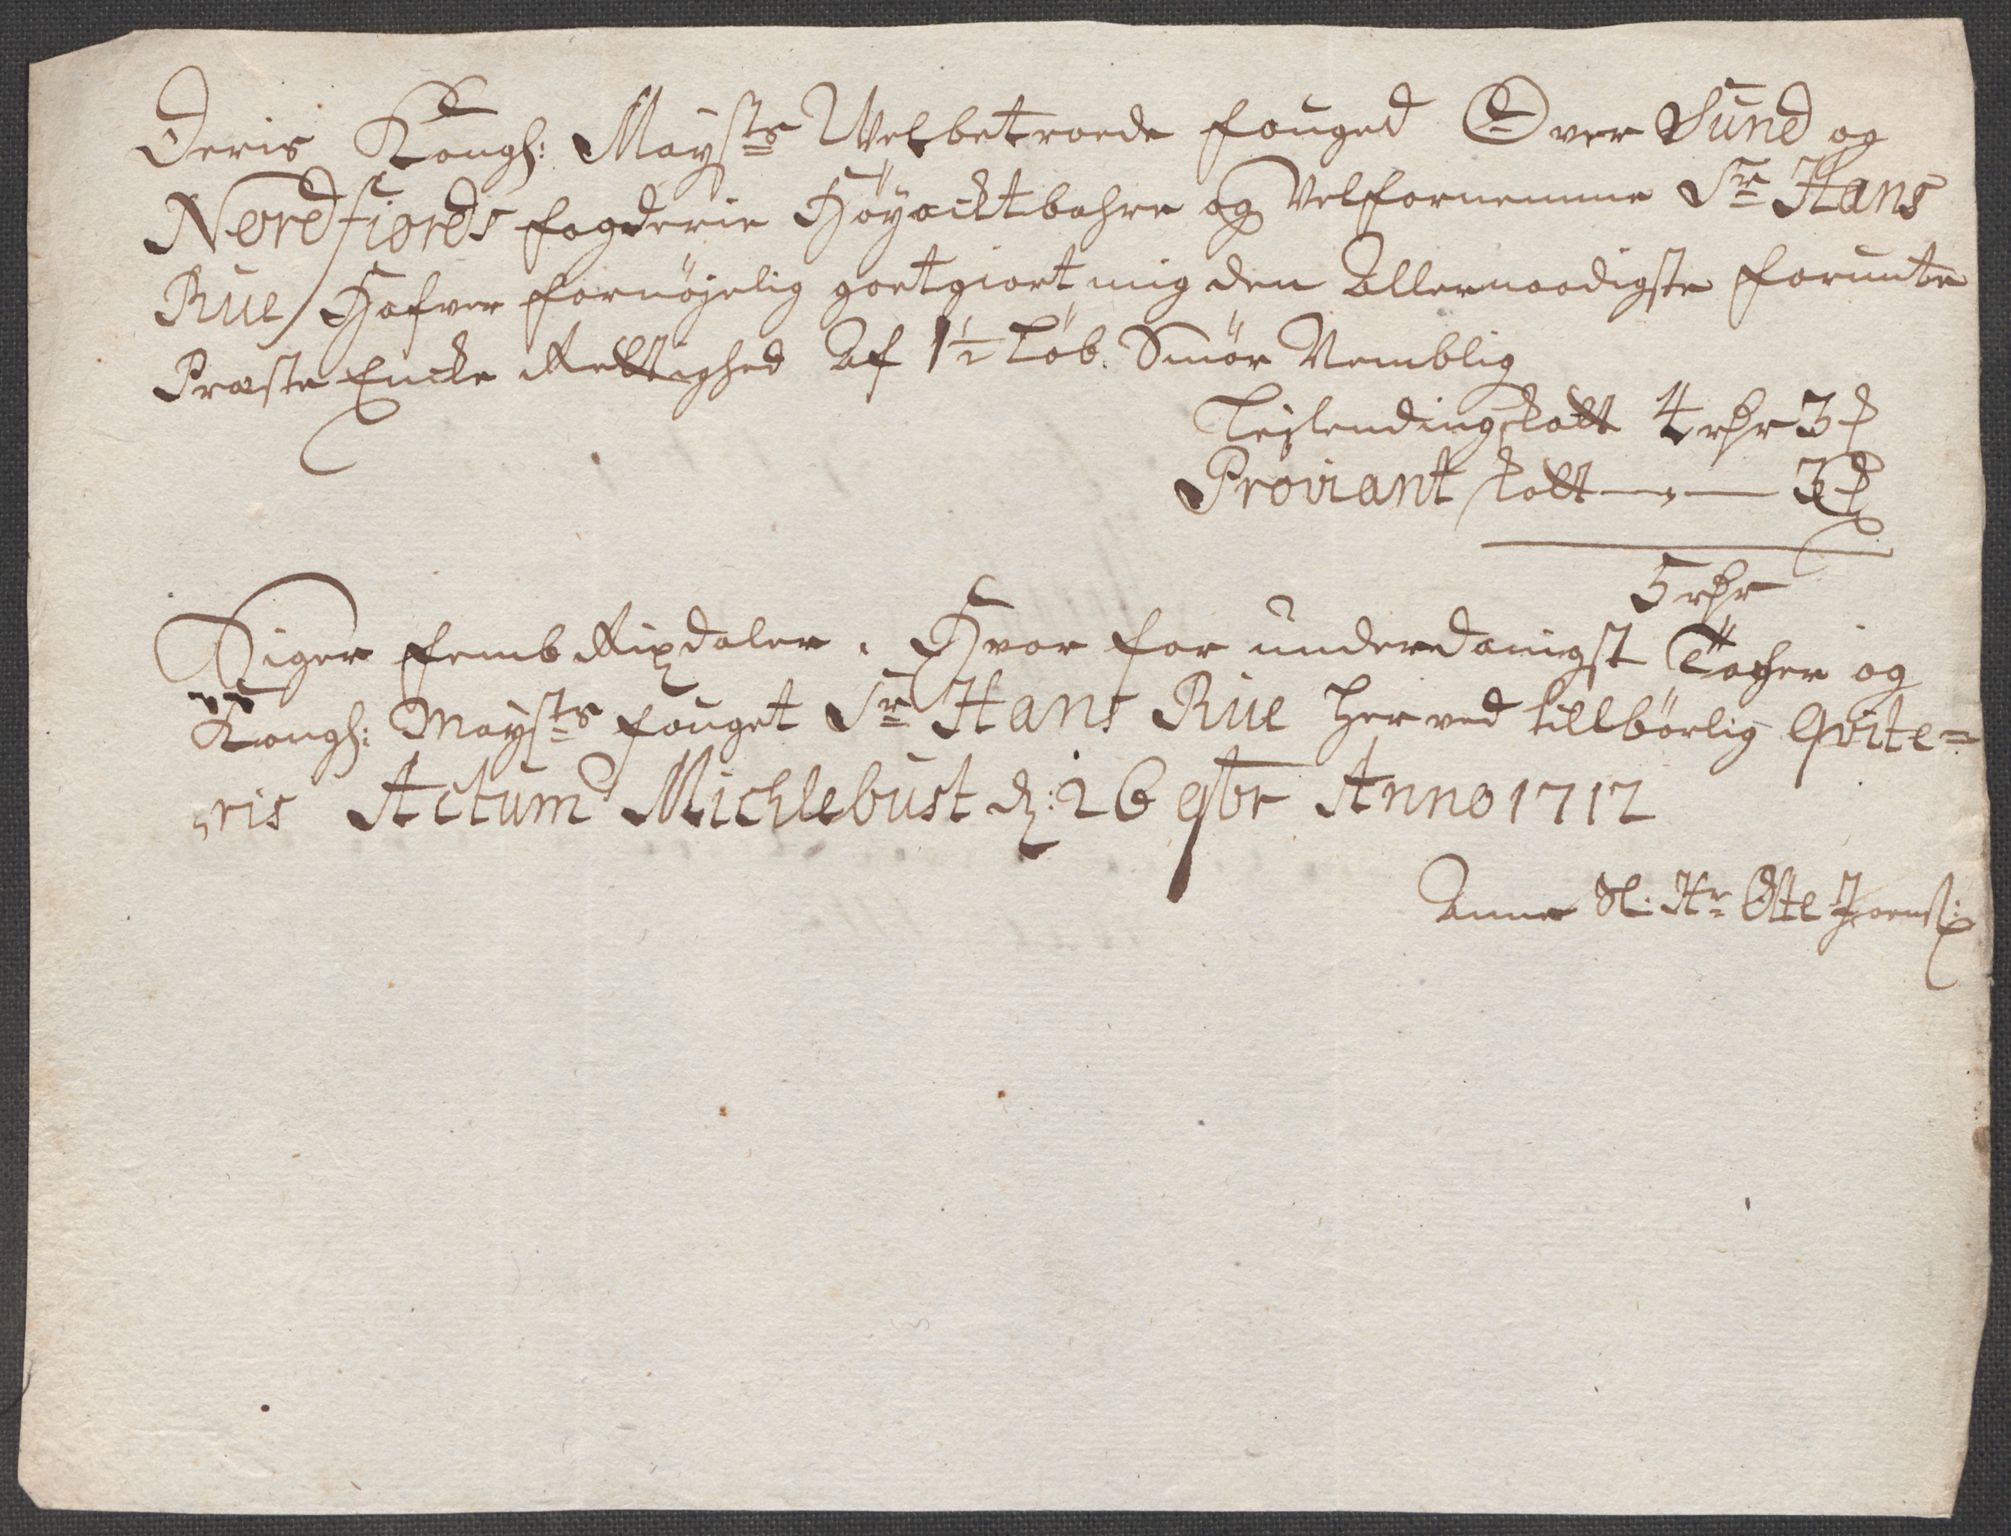 Deris Kongh: Maysts Velbetroede fouged Over Sund og
Nordfiords fogderie Höyacktbahre og Velfornemme Sr Hans
Rue Hafver fornöjelig goetgiort mig den Allernaadigste forunte
Præste Encke Rettighed Af 1½ Löb. Smör Nemblig
Leylendingskatt 4 rdr 3
Proviant skatt — 3
5 rdr
Siger femb Rixdaler. Hvor for underdanigst Tacher og
Kongh: Maysts fouget Sr Hans Rue herved tilbörlig Qvite=
ris Actum Michlebust d: 26 9br Anno 1712
Anne Sl: Hr Otte